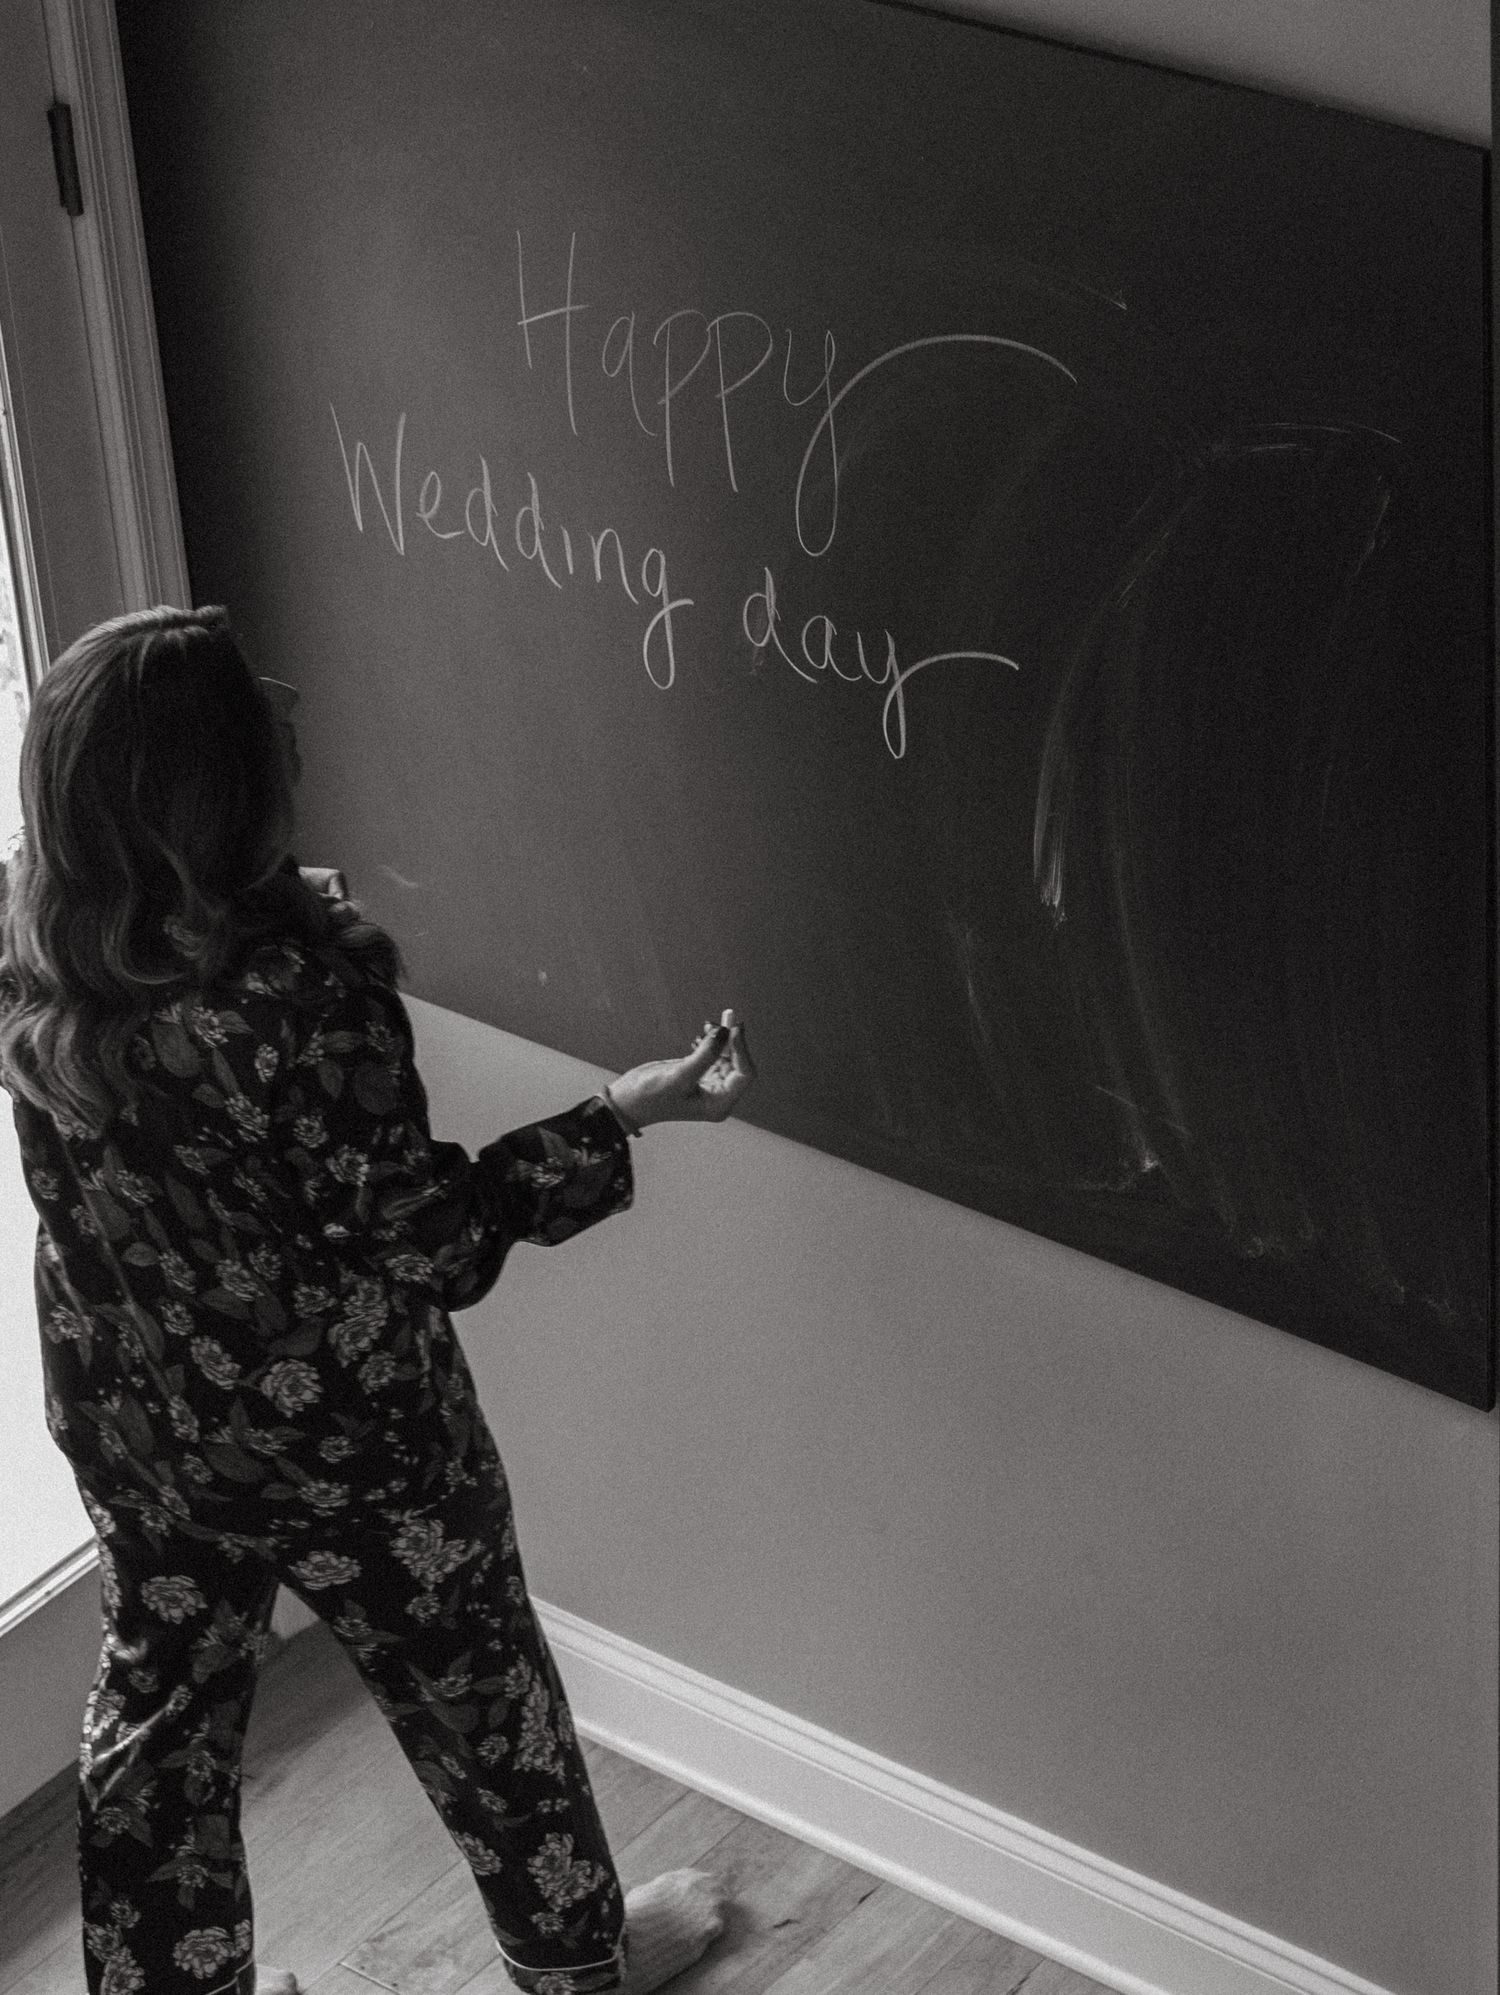 Happy
Wedding day